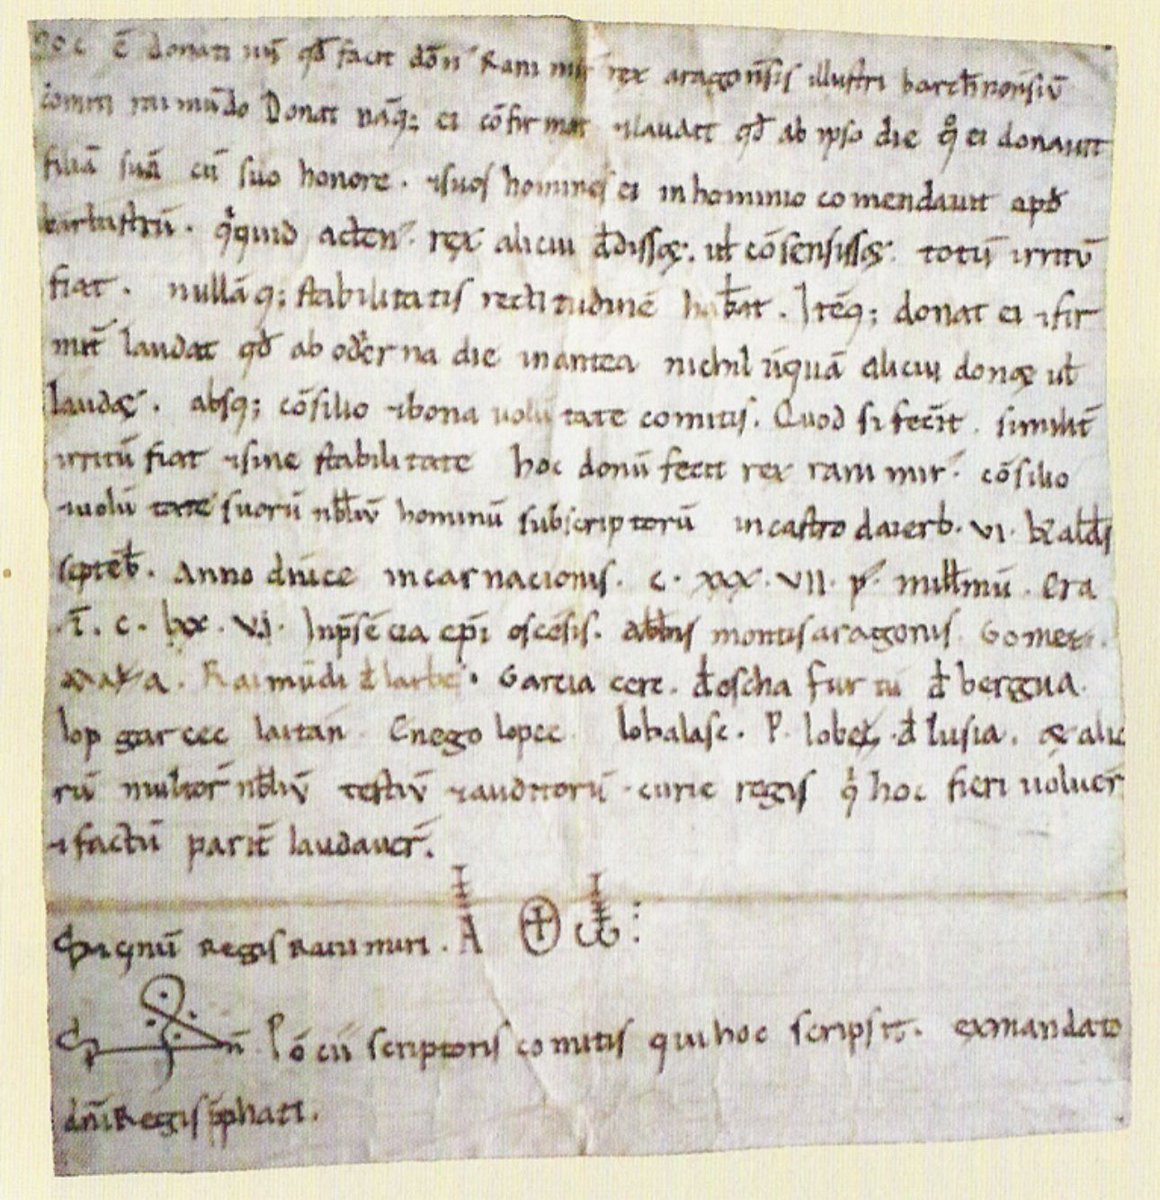 Hoc ē donatiuū qđ facit dōn᷒ Ranimir᷒ rex aragonēsis illustri barchinonēsiū
comiti raimūdo Donat nāq; ei cōfirmat ⁊laudat qđ ab ipso die q̊ ei donauit
filiā suā cū suo honore. ⁊suos homines ei inhominio comendauit apđ
barbastrū. q̇cquid actēn᷒ rex alicui đdisset; uł cōsensisset. totū irritū
fiat. nullāq; stabilitatis rectitudinē habeat. Itēq; donat ei ⁊fir
mat̄ laudat qđ ab odierna die inantea nichil ūquā alicui donet uł
laudet. absq; cōsilio ⁊bona uolūtate comitis. Quod si feceīt. similit̄
irritū fiat ⁊sine stabilitate hoc donū fecit rex ranimir᷒. cōsilio
⁊uolūtate suorū nƀliū hominū subscriptorū incastro daierb. VI. kƚ alđs
septeƀ. Anno dn̄ice incarnacionis. c. xxx. vii. p᷒ miƚƚmū. Era
.T̄. c. lxx. v. Inp̄sēcia ep̄i oscēsis. aƀƀis montisaragonis. Gometi.
Raimūdi đ larbes. Garcia cerc. đoscha furtū đ bergua.
lop garcec laitan. Enego lopec. lobalasc. P. lobez. đ lusia. & alio
rū multor̄ nƀliū testiū ⁊auditorū curie regis q̇ hoc fieri uoluer̄
⁊factū parit̄ laudauer̄.
Signū Regis Ranimiri. A ω:
S n̄. Pōcii scriptoris comitis quihoc scripsit. exmandato
dn̄iRegis p̄phati.